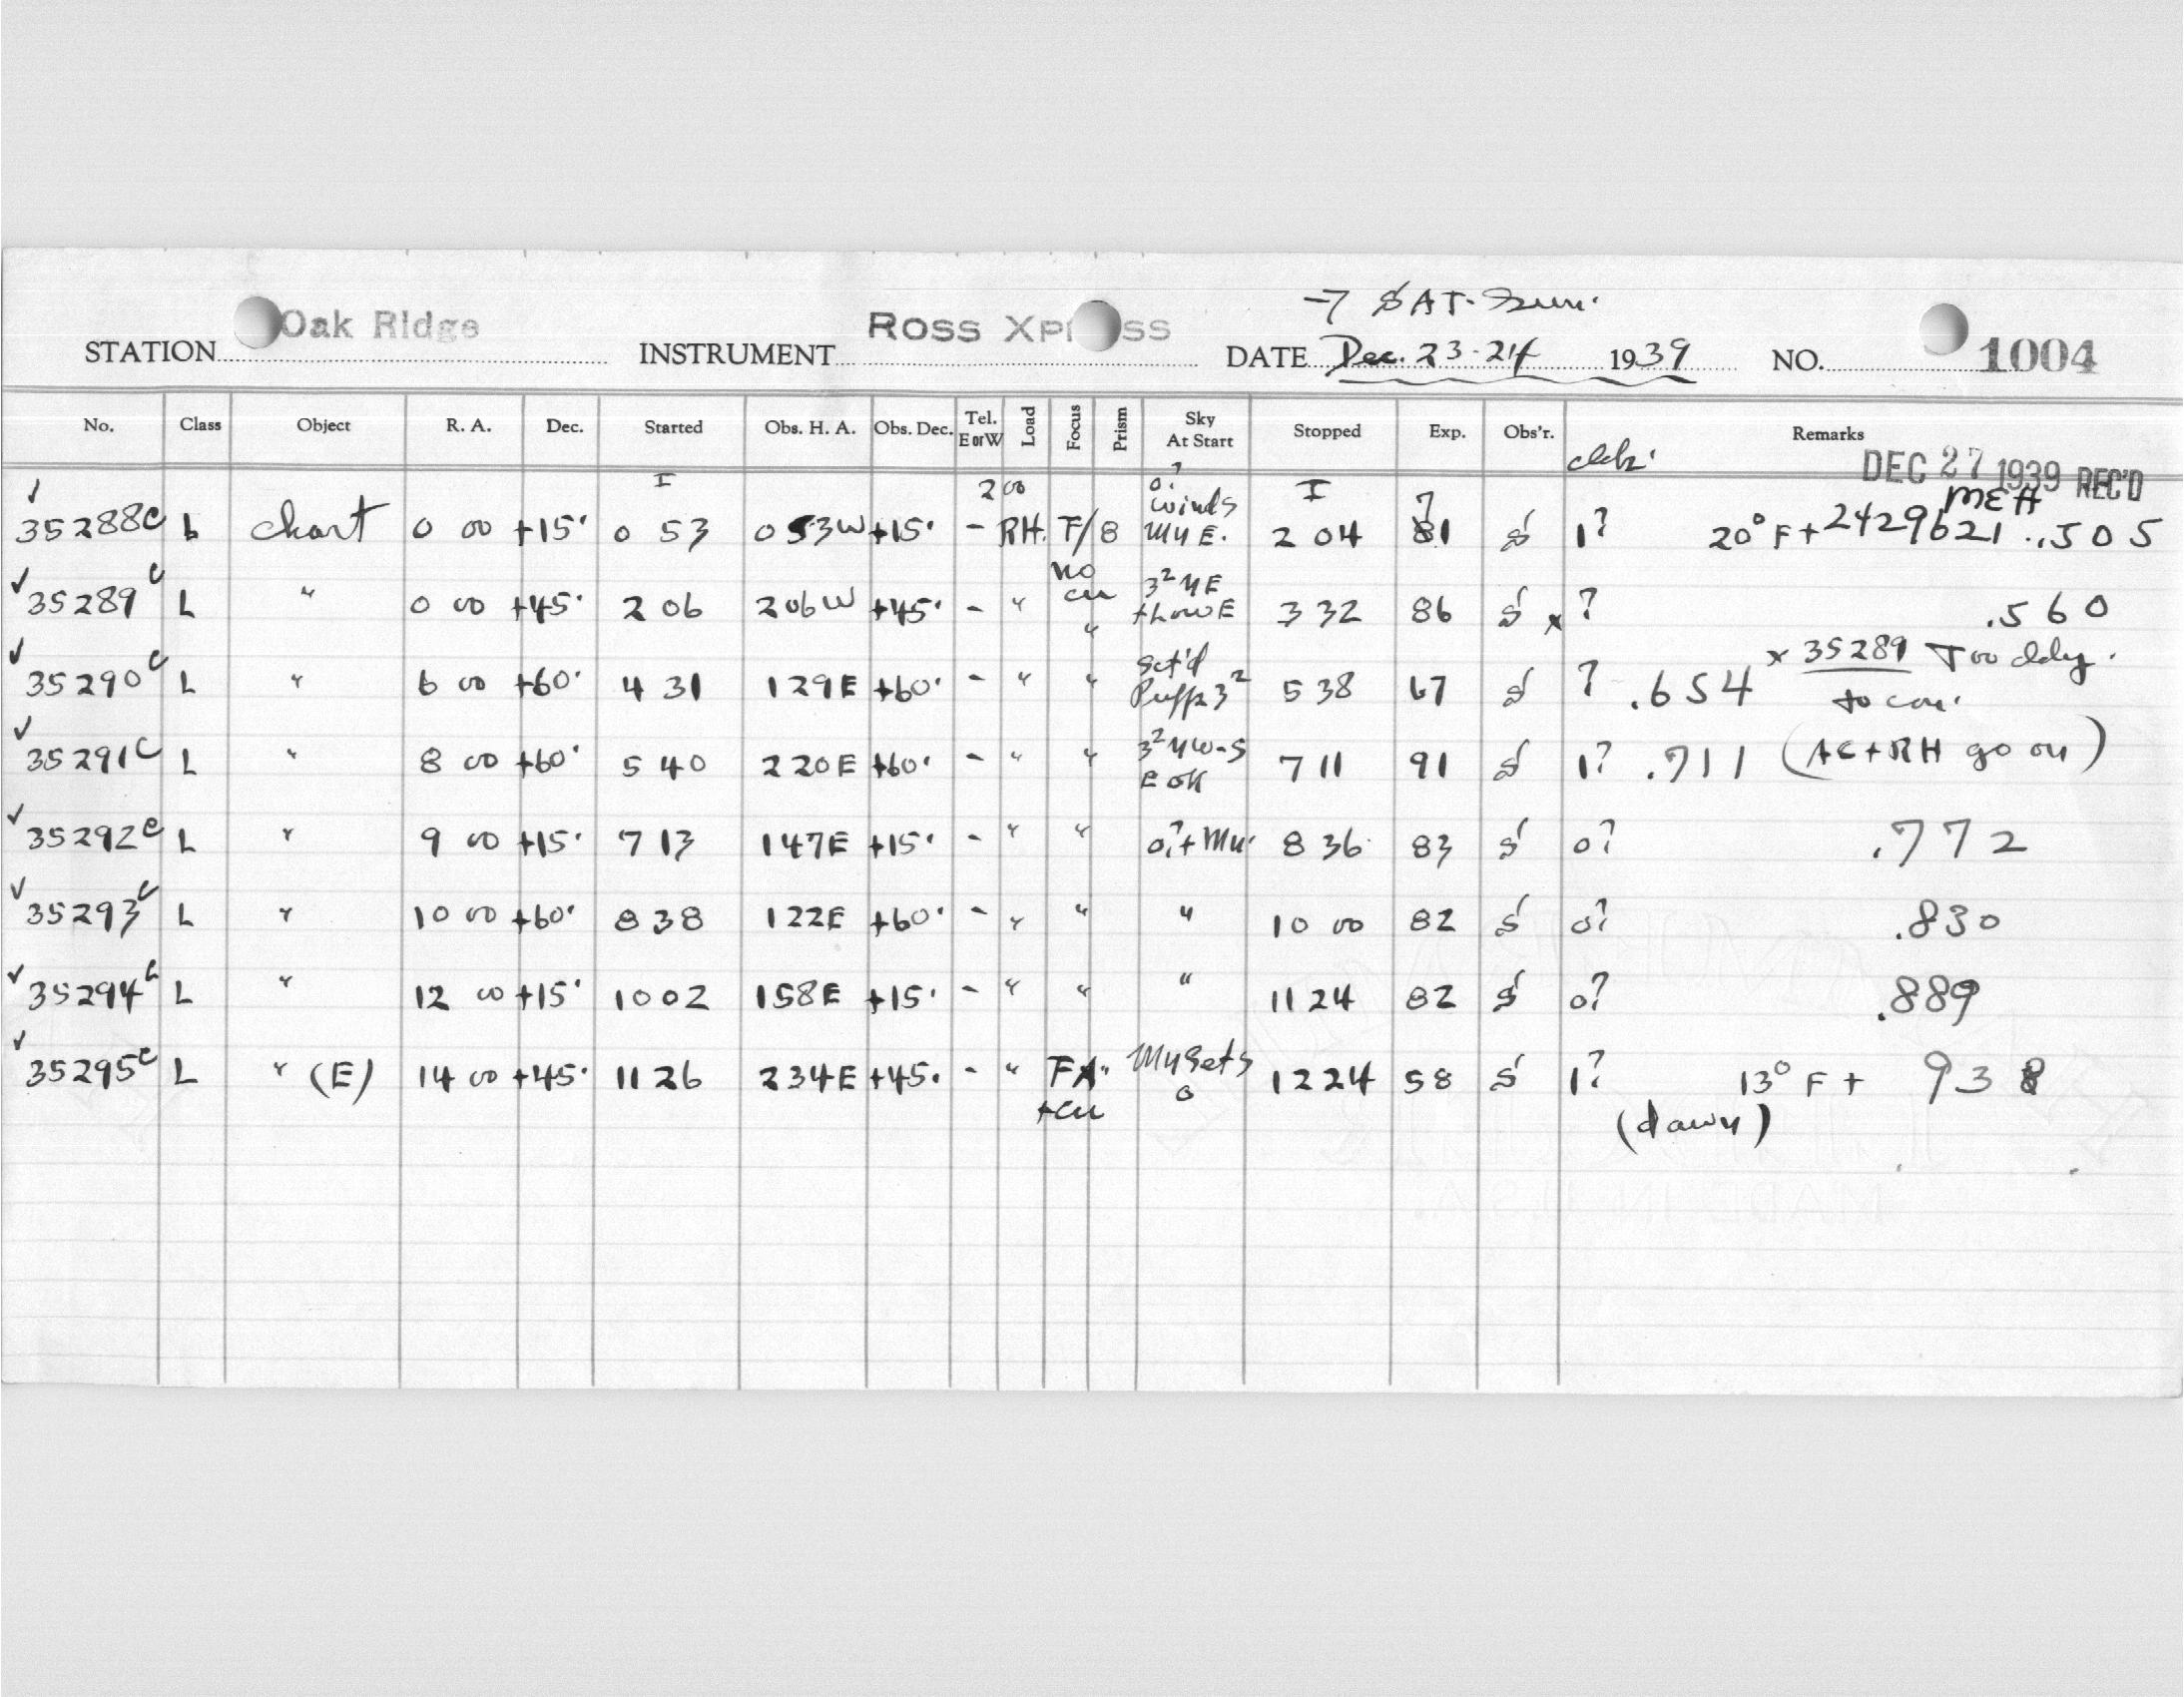 → SAT-Sun.
STATION Oak Ridge INSTRUMENT Ross Xpress DATE Dec. 23-24 1939 NO. 1004
No. Class Object R. A. Dec. Started Obs. H. A. Obs. Dec. Tel. E or W Load Focus Prism Sky At Start Stopped Exp. Obs'r. Remarks
DEC 27 1939 REC'D
MEH
35288c L chart 0 00 +15° I 0 53 053W +15° - 200 RH. F/8 0? winds My E. I 2 04 71 S 1? 20° F+ 2429621..505
35289c L " 0 00 +45° 2 06 206W +45° - " no cu 3² NE + low E 3 32 86 S x ? .560
35290c L " 6 00 +60° 4 31 129E +60° - " " Sct'd Puffs 3² 5 38 67 S ? .654 x 35289 Too cldy. to con.
35291c L " 8 00 +60° 5 40 220E +60° - " " 3² NW-S E OK 7 11 91 S 1? .711 (AC+RH go on)
35292c L " 9 00 +15° 7 13 147E +15° - " " 0?+ My 8 36 83 S 0? .772
35293c L " 10 00 +60° 8 38 122E +60° - " " " 10 00 82 S 0? .830
35294c L " 12 00 +15° 10 02 158E +15° - " " " 11 24 82 S 0? .889
35295c L " (E) 14 00 +45° 11 26 234E +45° - " FA" +cu My Sets 0 12 24 58 S 1? 13° F+ 938
(dawn)